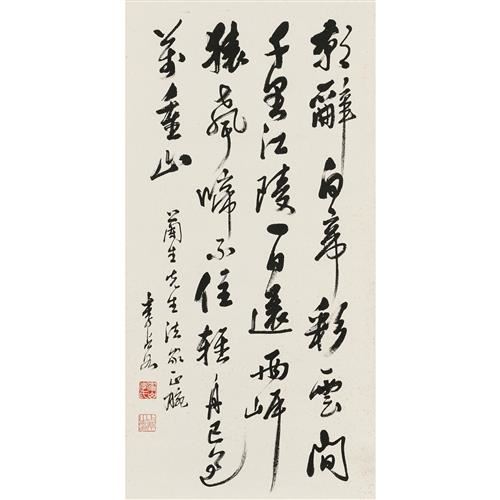 朝辭白帝彩雲間
千里江陵一日還兩岸
猿聲啼不住輕舟已過
萬重山
蘭生先生法家正腕
李